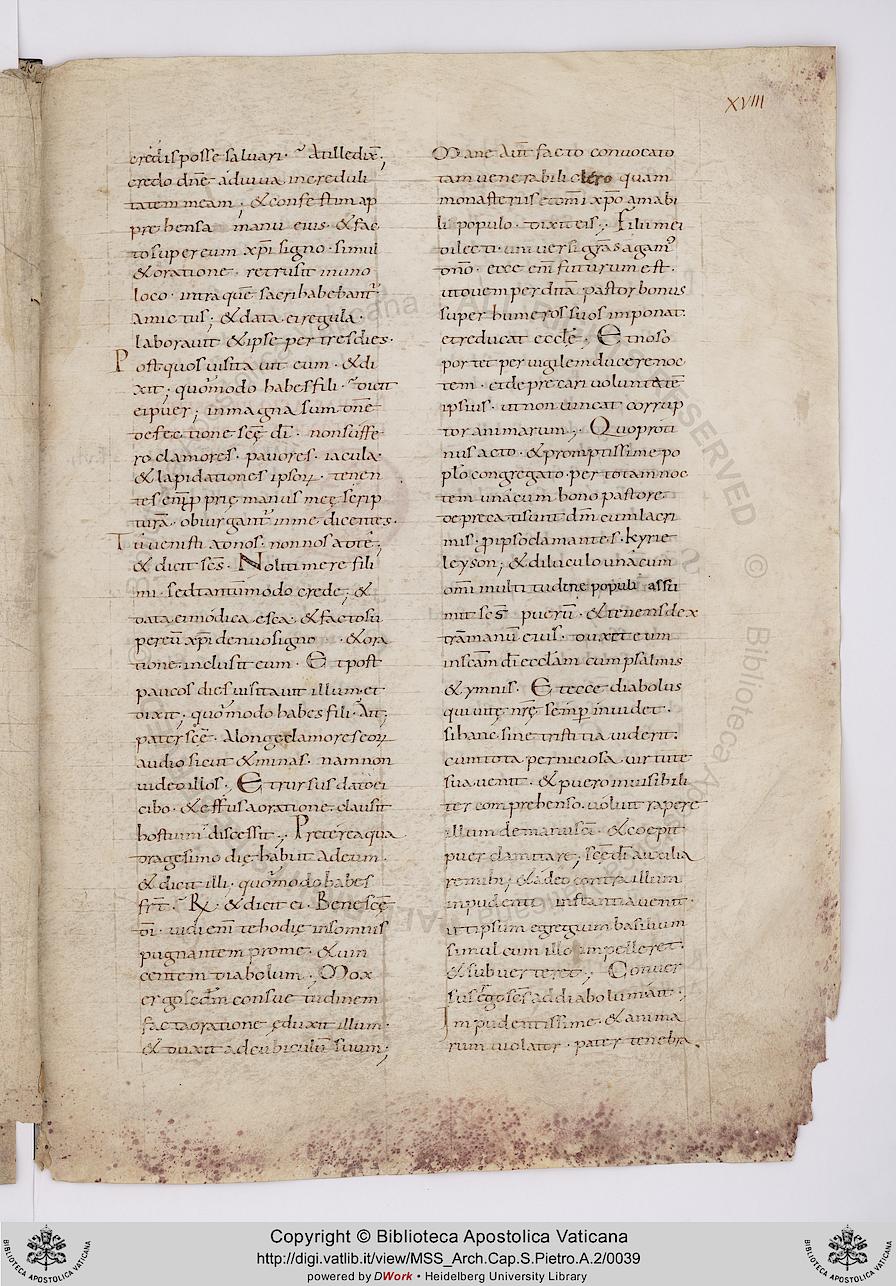 XVIII
credis posse saluari · At ille dix̅ ;
credo dn̅e adiuua increduli
tatem meam ; & confestim ap
prehensa manu eius · & fac
to super eum xp̅i signo · simul
& oratione · retrusit in uno
loco · intra quē sacri habebant᷑
amictus ; & data ei regula ·
laborauit & ipse per tres dies ·
Post quos uisitauit eum · & di
xit ; quōmodo habes fili · dicit
ei puer ; in magna sum dn̅e
defectione sc̅e di̅ · non suffe
ro clamores · pauores · iacula ·
& lapidationes ipsoꝝ · tenen
tes eni̅ proprię manus meę scrip
turā · obiurgant᷑ in me dicentes ·
Tu uenisti ad nos · non nos ad te ;
& dicit sc̅s · Noli timere fili
mi · sed tantūmodo crede ; &
data ei modica esca · & facto su
per eū xp̅i denuo signo · & ora
tione · inclusit eum · Et post
paucos dies uisitauit illum · et
dixit ; quōmodo habes fili · Ait ;
pater sc̅e · A longe clamores eoꝝ
audio sicut & minas · nam non
uideo illos · Et rursus dato ei
cibo · & effusa oratione · clausit
hostium discessit ; Preterea qua
dragesimo die · habiit ad eum ·
& dicit illi · quōmodo habes
fr̅t · R̅x · & dicit ei · Bene sc̅e
di̅ · uidi eni̅ te hodie insomnis
pugnantem pro me · & uin
centem diabolum · Mox
ergo secd̅m consuetudinem
facta oratione ęduxit illum ·
& duxit ad cubiculū suum ;
Mane aut̅ facto conuocato
tam uenerabili clero quam
monasteriis et om̅i xp̅o amabi
li populo · dixit eis ; Filii mei
dilecti · uniuersi gr̅as agam᷒
dn̅o · ecce eni̅ futurum est ·
ut ouem perditā · pastor bonus
super humeros suos imponat ·
et reducat eccle̅ · Et nos o
portet peruigilem ducere noc
tem · et deprecari uoluntatē
ipsius · ut non uincat corrup
tor animarum ; Quo proti
nus acto · & promptissime po
pl̅o congregato · per totam noc
tem una cum bono pastore
deprecati sunt dn̅m cum lacri
mis · p ipso clamantes · kyrie
leyson ; & diluiculo una cum
om̅i multitudine populi assu
mit sc̅s puerū · & tenens dex
trā manū eius · duxit eum
in sc̅am di̅ eccl̅am cum psalmis
& ymnis · Et ecce diabolus
qui uitę nr̅ę semp̅ inuidet ·
si hanc sine tristitia uiderit ·
cum tota perniciosa uirtute
sua uenit · & puero inuisibili
ter comprehenso · uoluit rapere
illum de manu sc̅i · & coepit
puer clamitare ; sc̅e di̅ auxilia
re mihi ; & adeo contra illum
inpudenti instantia uenit ·
ut ipsum egregium basilium
simul cum illo impelleret ·
& subuerteret ; Conuer
sus ergo sc̅s ad diabolum ait ;
Inpudentissime · & anima
rum uiolator · pater tenebra
Copyright © Biblioteca Apostolica Vaticana
http://digi.vatlib.it/view/MSS_Arch.Cap.S.Pietro.A.2/0039
powered by DWork • Heidelberg University Library